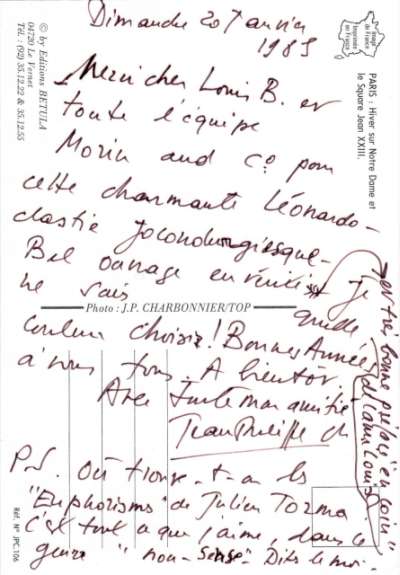 Dimanche 20 Janvier
1985
Merci cher Louis B. et
toute l'équipe
Morin and C° pour
cette charmante Léonardo-
clastie Jocondurgiesque.
Bel ouvrage en vérité Je
ne sais quelle
couleur choisir! Bonnes Années
à vous tous. A bientôt.
Avec toute mon amitié
Jean Philippe
et très bonne
de l'ami Louis
P.S. Où trouve-t-on les
"Euphorismes" de Julien Torma
c'est tout ce que j'aime, dans le
genre "non-sense". Dites le moi.
Image de France
Imprimée en France
PARIS : Hiver sur Notre Dame et
le Square Jean XXIII.
Photo : J.P. CHARBONNIER/TOP
© by Editions BETULA
04720 Le Vernet
Tél. : (92) 35.12.22 & 35.12.55
Réf. N° JPC-106